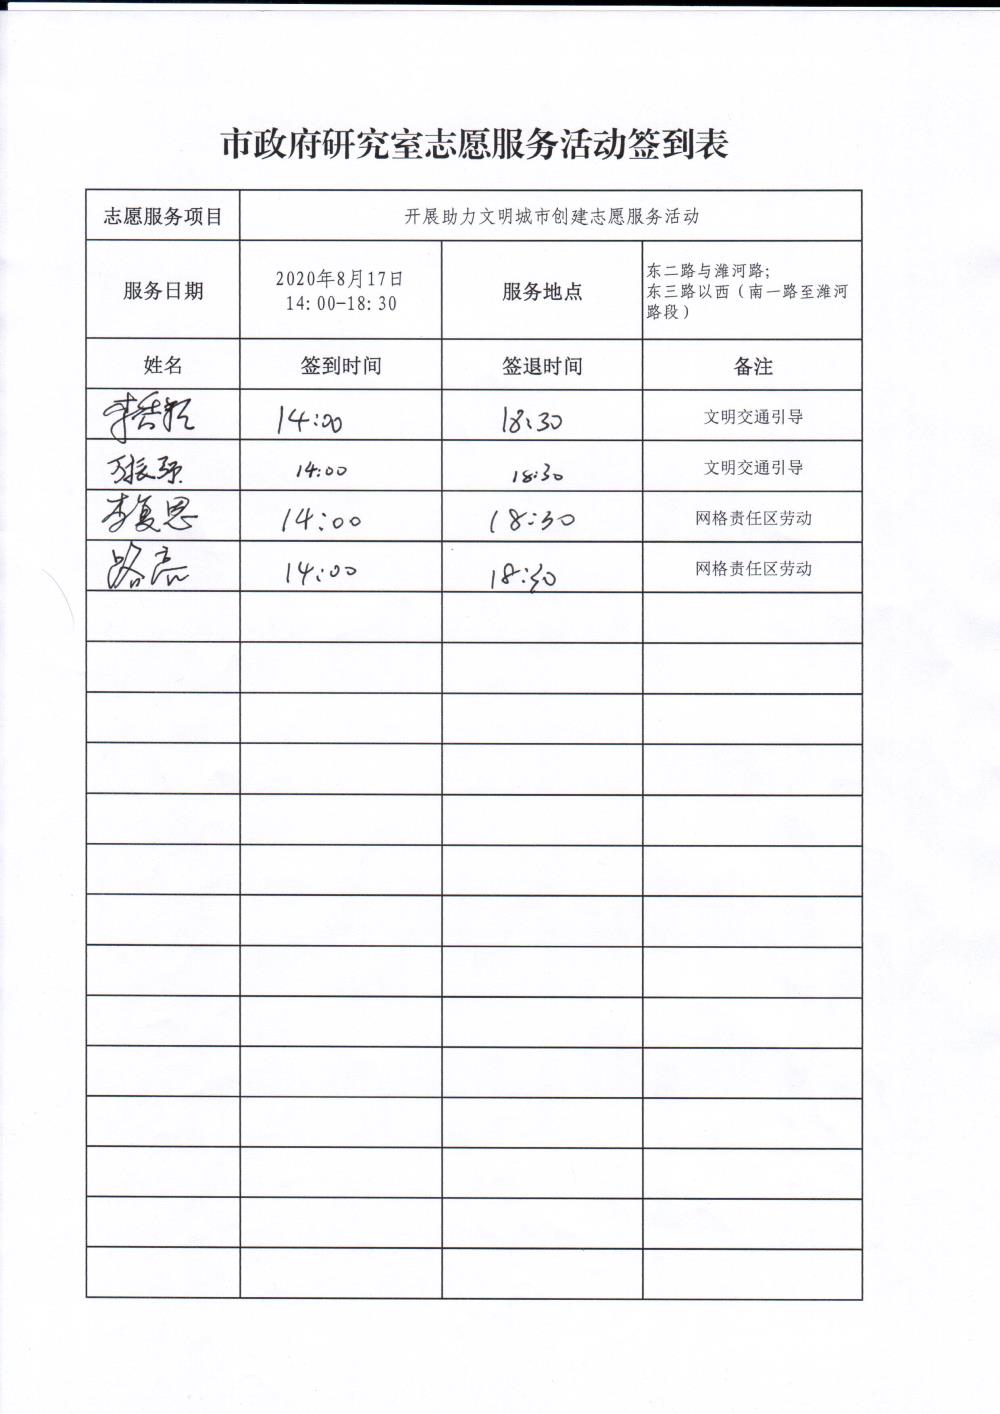 市政府研究室志愿服务活动签到表
志愿服务项目 开展助力文明城市创建志愿服务活动
服务日期 2020年8月17日 14:00-18:30 服务地点 东二路与潍河路;
东三路以西（南一路至潍河
路段）
姓名 签到时间 签退时间 备注
14:00 18:30 文明交通引导
14:00 18:30 文明交通引导
李复恩 14:00 18:30 网格责任区劳动
路亮 14:00 18:30 网格责任区劳动